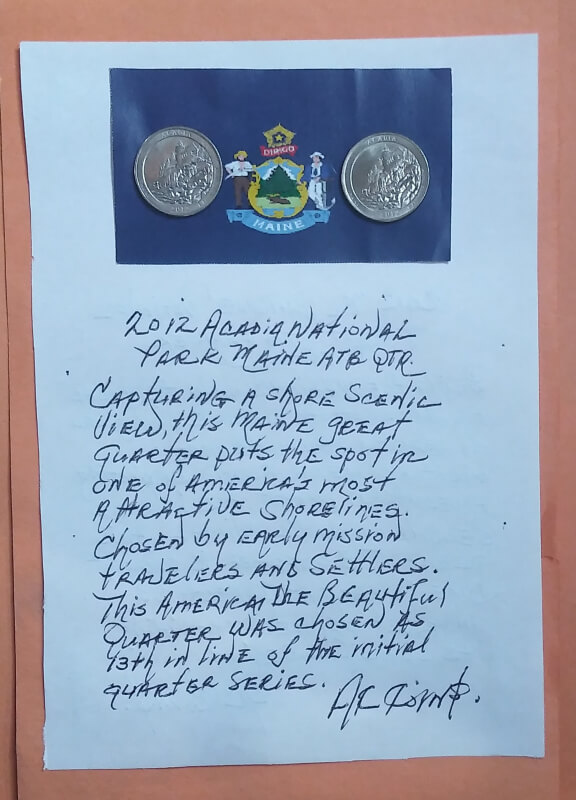 ACADIA
ACADIA
DIRIGO
MAINE
2012
2012 Acadia National
Park Maine ATB QTR
Capturing a shore scenic
view, this Maine great
quarter puts the spot in
one of America's most
attractive shorelines.
Chosen by early mission
travelers and settlers.
This America the Beautiful
quarter was chosen as
13th in line of the initial
quarter series.